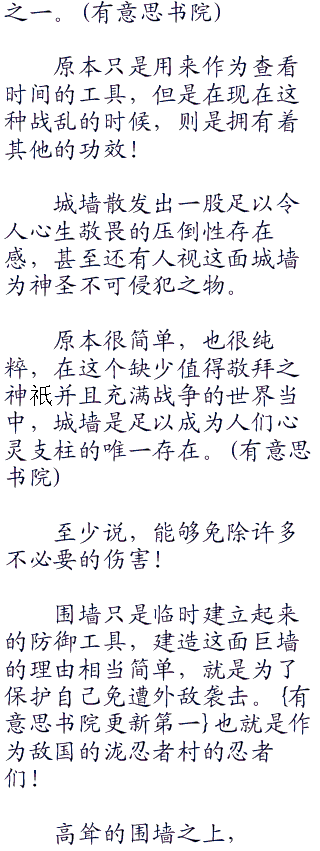 之一。 (有意思书院)
原本只是用来作为查看
时间的工具，但是在现在这
种战乱的时候，则是拥有着
其他的功效！
城墙散发出一股足以令
人心生敬畏的压倒性存在
感，甚至还有人视这面城墙
为神圣不可侵犯之物。
原本很简单，也很纯
粹，在这个缺少值得敬拜之
神祇并且充满战争的世界当
中，城墙是足以成为人们心
灵支柱的唯一存在。 (有意思
书院)
至少说，能够免除许多
不必要的伤害！
围墙只是临时建立起来
的防御工具，建造这面巨墙
的理由相当简单，就是为了
保护自己免遭外敌袭击。 {有
意思书院更新第一} 也就是作
为敌国的泷忍者村的忍者
们！
高耸的围墙之上，